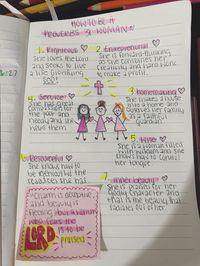 HOW TO BE A
PROVERBS 31 WOMAN
1. Righteous
She loves the Lord
and seeks to live
a life glorifying
GOD!
2. Entrepreneurial
She is forward-thinking,
as she combines her
creativity and hard work
to make a profit.
3. Homemaking
She makes a house
into a home and
shares her
servants
4. Service
She has great
compassion for
the poor and
needy and serves
them
5. Wise
She is a woman filled
with wisdom and she
knows how to control
her tongue
6. Resourceful
She knows how to
be
resources she has.
7. Inner beauty
She is praised for her
Godly character and
that is the beauty that
radiates out of her.
"Charm is deceptive
and beauty is
fleeting but a woman
who fears the
LORD
is to be
praised